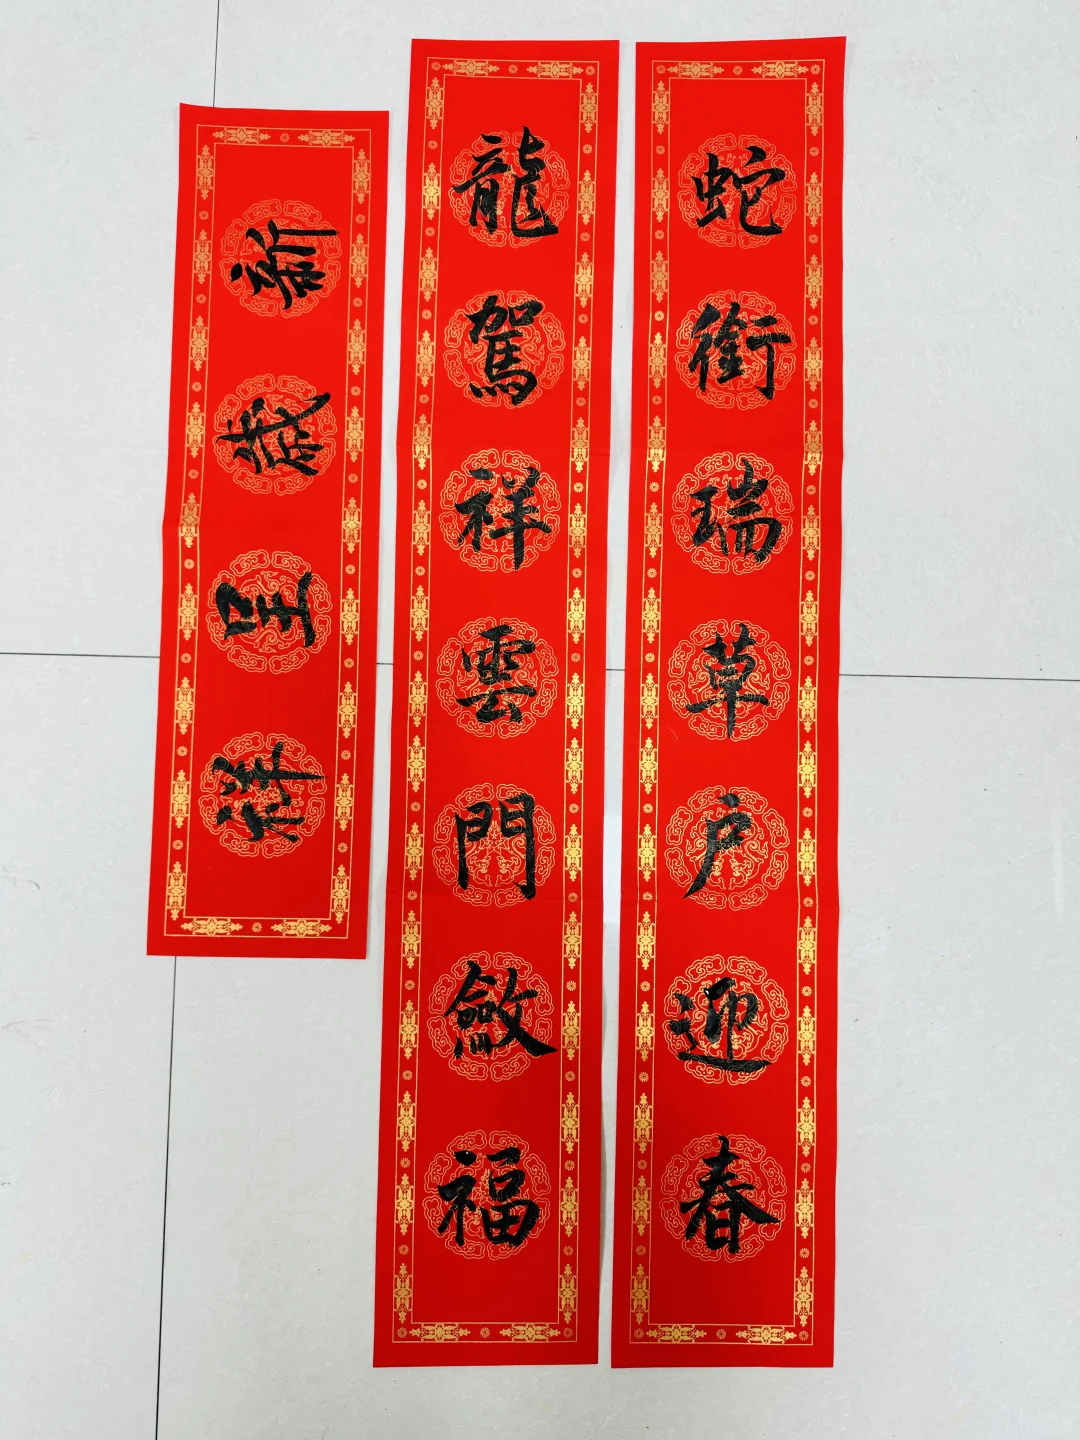 蛇銜瑞草户迎春
龍駕祥雲門斂福
新歲呈祥